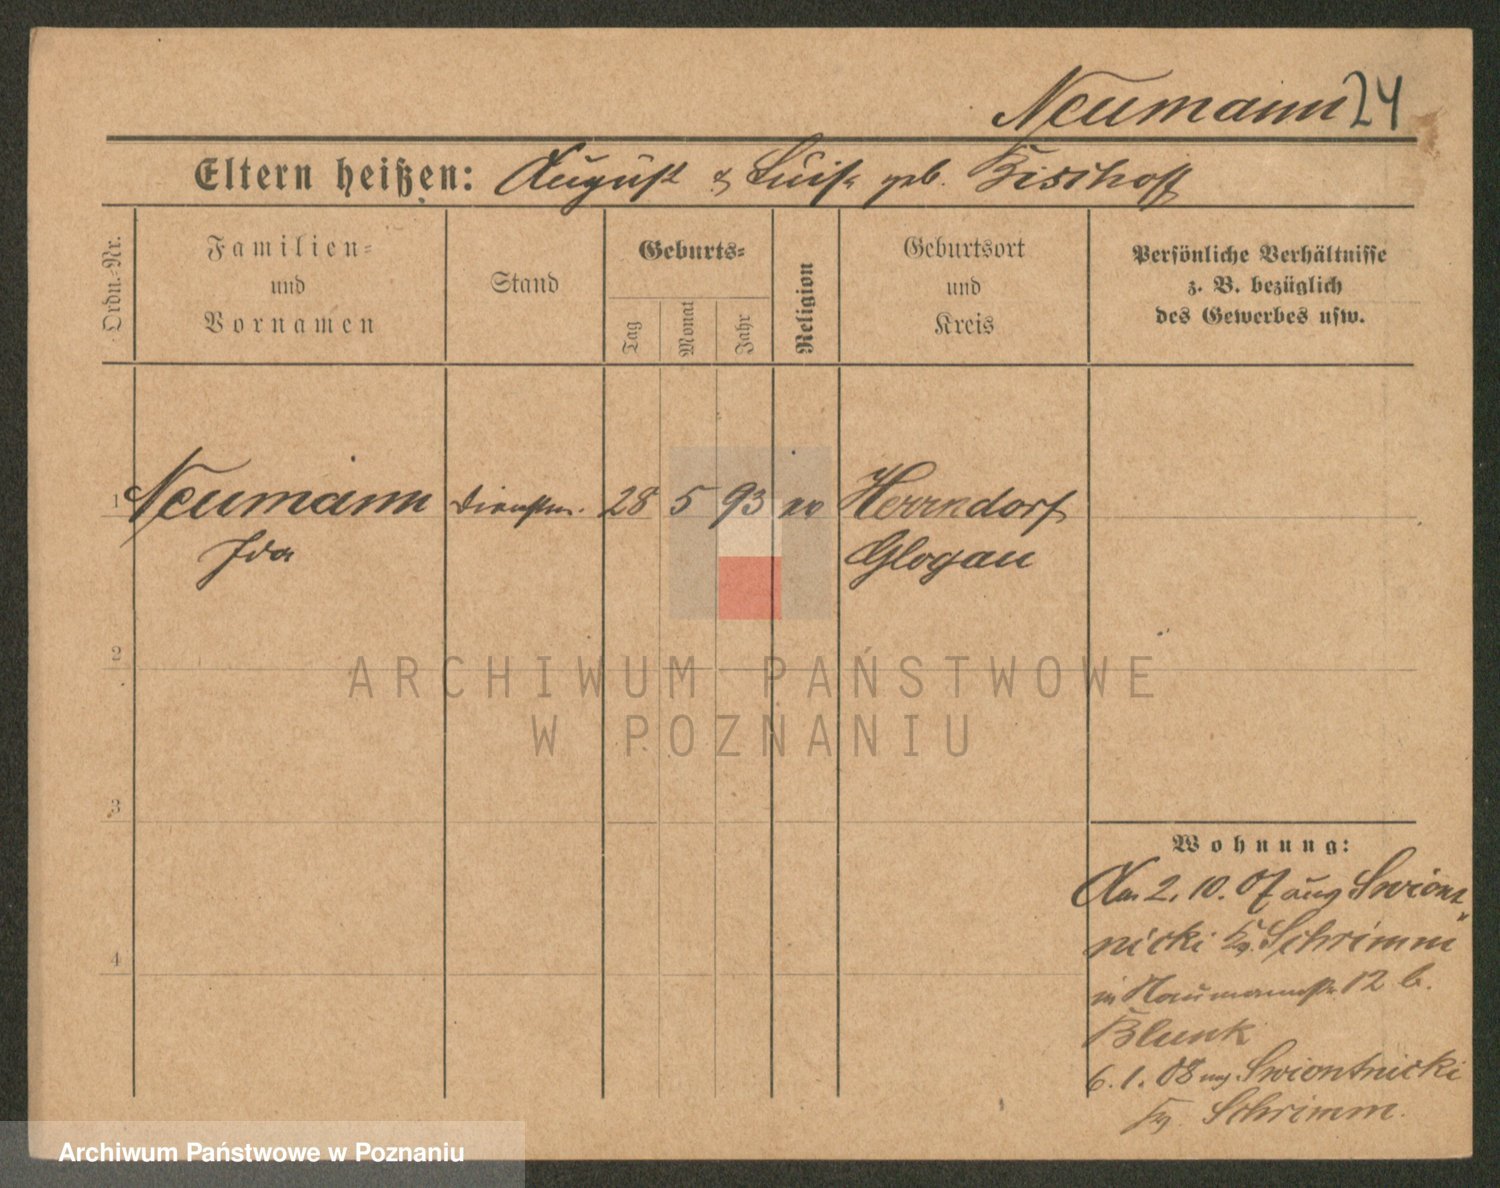 Neumann 24
Eltern heißen: August & Luise geb. Bischoff
Ordn.-Nr.
Familien-
und
Vornamen
Stand
Geburts-
Tag
Monat
Jahr
Religion
Geburtsort
und
Kreis
Persönliche Verhältnisse
z. B. bezüglich
des Gewerbes usw.
1 Neumann Dienstm. 28 5 93 ev Herrndorf
Ida Glogau
2
ARCHIWUM PAŃSTWOWE
W POZNANIU
3
4
Wohnung:
Am 2. 10. 07 aus Swiont-
nicki Kr. Schrimm
in Naumannstr 12 b.
Blunk
6. 1. 08 Swiontnicki
Kr. Schrimm.
Archiwum Państwowe w Poznaniu